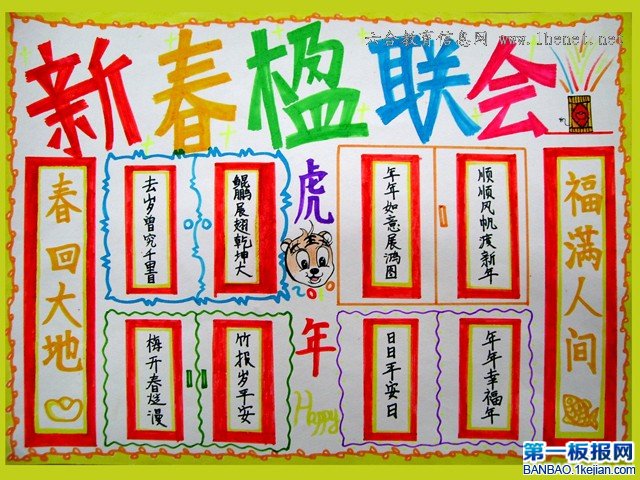 六合教育信息网 www.lhenet.net
新春楹联会
春回大地
去岁曾穷千里目
鲲鹏展翅乾坤大
虎年
年年如意展鸿图
顺顺风帆渡新年
福满人间
梅开春烂漫
竹报岁平安
Happy
日日平安日
年年幸福年
第一板报网
BANBAO.1kejian.com